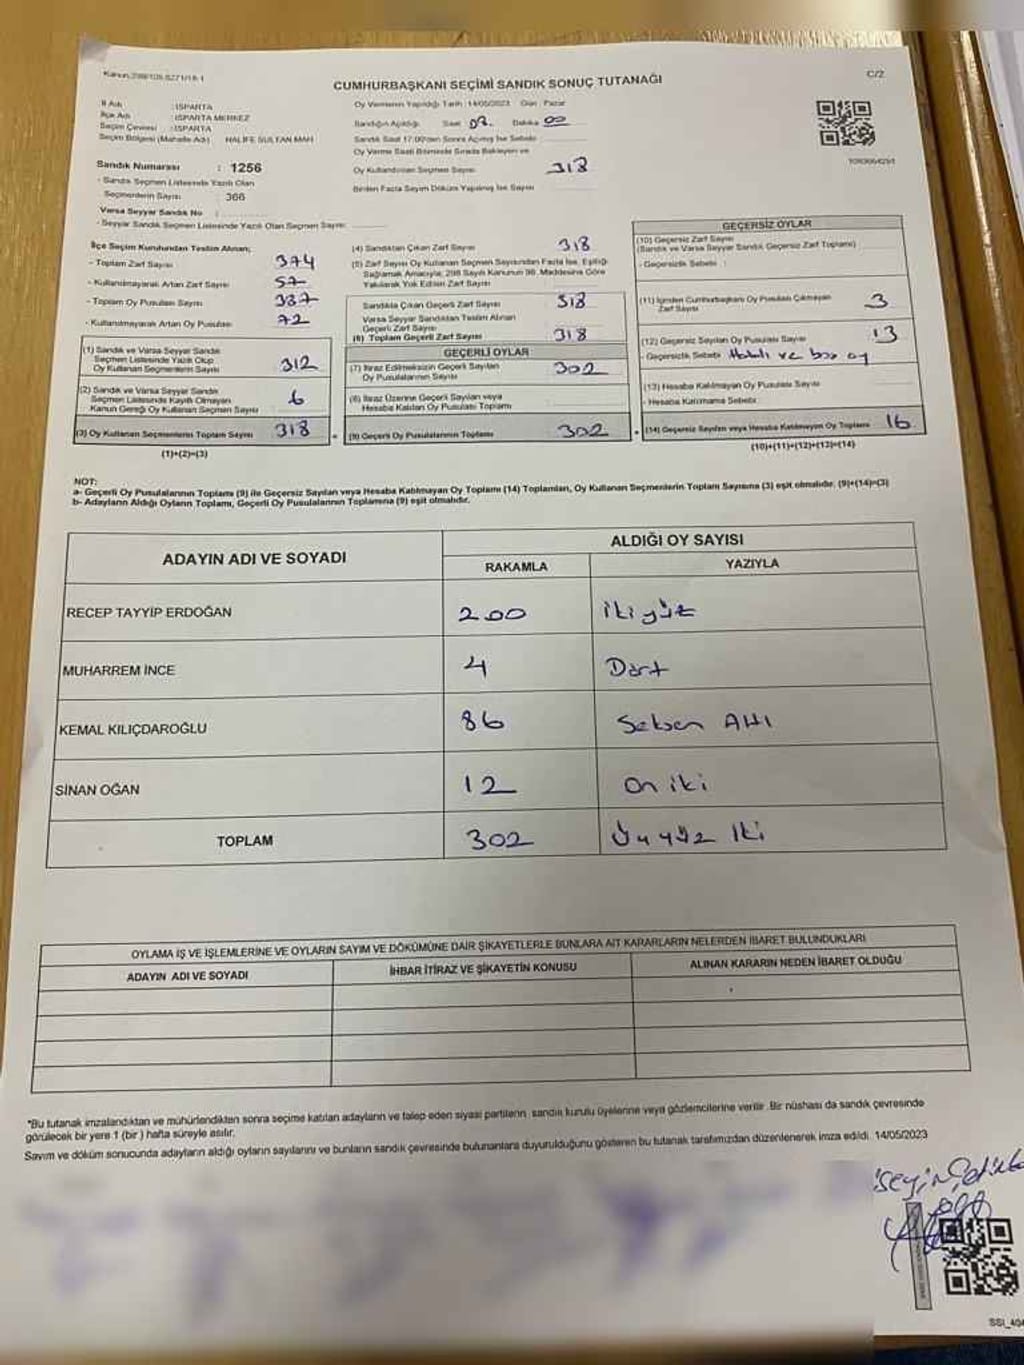 Kanun:298/109,6271/18-1
C/2
CUMHURBAŞKANI SEÇİMİ SANDIK SONUÇ TUTANAĞI
İl Adı : ISPARTA
İlçe Adı : ISPARTA MERKEZ
Seçim Çevresi : ISPARTA
Seçim Bölgesi (Mahalle Adı) HALİFE SULTAN MAH
Sandık Numarası : 1256
- Sandık Seçmen Listesinde Yazılı Olan
Seçmenlerin Sayısı : 366
Varsa Seyyar Sandık No :
- Seyyar Sandık Seçmen Listesinde Yazılı Olan Seçmen Sayısı:
Oy Vermenin Yapıldığı Tarih :14/05/2023 Gün : Pazar
Sandığın Açıldığı Saat 08. Dakika 00
Sandık Saat 17.00'den Sonra Açılmış İse Sebebi
Oy Verme Saati Bitiminde Sırada Bekleyen ve
Oy Kullandırılan Seçmen Sayısı 318
Birden Fazla Sayım Döküm Yapılmış İse Sayısı
İlçe Seçim Kurulundan Teslim Alınan;
- Toplam Zarf Sayısı 374
- Kullanılmayarak Artan Zarf Sayısı 57
- Toplam Oy Pusulası Sayısı 387
- Kullanılmayarak Artan Oy Pusulası 72
(1) Sandık ve Varsa Seyyar Sandık
Seçmen Listesinde Yazılı Olup
Oy Kullanan Seçmenlerin Sayısı 312
(2) Sandık ve Varsa Seyyar Sandık
Seçmen Listesinde Kayıtlı Olmayan
Kanun Gereği Oy Kullanan Seçmen Sayısı 6
(3) Oy Kullanan Seçmenlerin Toplam Sayısı 318
(1)+(2)=(3)
(4) Sandıktan Çıkan Zarf Sayısı 318
(5) Zarf Sayısı Oy Kullanan Seçmen Sayısından Fazla İse, Eşitliği
Sağlamak Amacıyla, 298 Sayılı Kanunun 98. Maddesine Göre
Yakılarak Yok Edilen Zarf Sayısı
Sandıkta Çıkan Geçerli Zarf Sayısı 318
Varsa Seyyar Sandıktan Teslim Alınan
Geçerli Zarf Sayısı
(6) Toplam Geçerli Zarf Sayısı 318
GEÇERLİ OYLAR
(7) İtiraz Edilmeksizin Geçerli Sayılan
Oy Pusulalarının Sayısı 302
(8) İtiraz Üzerine Geçerli Sayılan veya
Hesaba Katılan Oy Pusulası Toplamı
(9) Geçerli Oy Pusulalarının Toplamı 302
GEÇERSİZ OYLAR
(10) Geçersiz Zarf Sayısı
(Sandık ve Varsa Seyyar Sandık Geçersiz Zarf Toplamı)
- Geçersizlik Sebebi :
(11) İçinden Cumhurbaşkanı Oy Pusulası Çıkmayan
Zarf Sayısı 3
(12) Geçersiz Sayılan Oy Pusulası Sayısı 13
- Geçersizlik Sebebi Hatalı ve boş oy
(13) Hesaba Katılmayan Oy Pusulası Sayısı
- Hesaba Katılmama Sebebi
(14) Geçersiz Sayılan veya Hesaba Katılmayan Oy Toplamı 16
(10)+(11)+(12)+(13)=(14)
NOT:
a- Geçerli Oy Pusulalarının Toplamı (9) ile Geçersiz Sayılan veya Hesaba Katılmayan Oy Toplamı (14) Toplamları, Oy Kullanan Seçmenlerin Toplam Sayısına (3) eşit olmalıdır. (9)+(14)=(3)
b- Adayların Aldığı Oyların Toplamı, Geçerli Oy Pusulalarının Toplamına (9) eşit olmalıdır.
ADAYIN ADI VE SOYADI
ALDIĞI OY SAYISI
RAKAMLA YAZIYLA
RECEP TAYYİP ERDOĞAN 200 İkiyüz
MUHARREM İNCE 4 Dört
KEMAL KILIÇDAROĞLU 86 Seksen Altı
SİNAN OĞAN 12 On iki
TOPLAM 302 Üçyüz İki
OYLAMA İŞ VE İŞLEMLERİNE VE OYLARIN SAYIM VE DÖKÜMÜNE DAİR ŞİKAYETLERLE BUNLARA AİT KARARLARIN NELERDEN İBARET BULUNDUKLARI
ADAYIN ADI VE SOYADI İHBAR İTİRAZ VE ŞİKAYETİN KONUSU ALINAN KARARIN NEDEN İBARET OLDUĞU
*Bu tutanak imzalandıktan ve mühürlendikten sonra seçime katılan adayların ve talep eden siyasi partilerin sandık kurulu üyelerine veya gözlemcilerine verilir. Bir nüshası da sandık çevresinde
görülecek bir yere 1 (bir) hafta süreyle asılır.
Sayım ve döküm sonucunda adayların aldığı oyların sayılarını ve bunların sandık çevresinde bulunanlara duyurulduğunu gösteren bu tutanak tarafımızdan düzenlenerek imza edildi. 14/05/2023